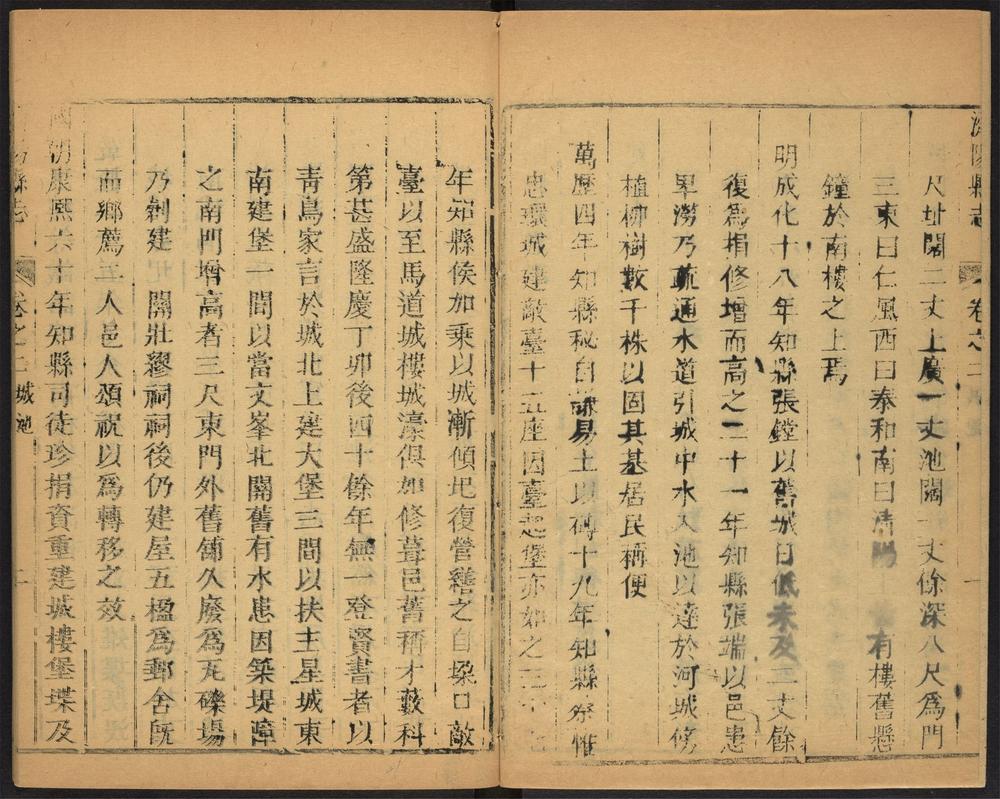 尺址闊二丈上廣一丈池闊一丈餘深八尺爲門
三東曰仁風西曰泰和南曰清陽有樓舊懸
鐘於南樓之上焉
明成化十八年知縣張鏜以舊城日低未及二丈餘
復爲捐修增而高之二十一年知縣張端以邑患
旱澇乃疏通水道引城中水入池以達於河城傍
植柳樹數千株以固其基居民稱便
萬歷四年知縣秘自謙易土以磚十九年知縣蔡惟
忠環城建敵臺十五座因臺起堡亦如之三十
年知縣侯加乘以城漸傾圮復營繕之自垜口敵
臺以至馬道城樓城濠俱加修葺邑舊稱才藪科
第甚盛隆慶丁卯後四十餘年無一登賢書者以
青鳥家言於城北上建大堡三間以扶主星城東
南建堡一間以當文峯北關舊有水患因築堤障
之南門增高者三尺東門外舊鋪久廢爲瓦礫場
乃剏建關壯繆祠祠後仍建屋五楹爲郵舍旣
而鄉薦五人邑人頌祝以爲轉移之效
國朝康熙六十年知縣司徒珍捐資重建城樓堡堞及
縣志
卷之二
城池
陽縣志
卷之二